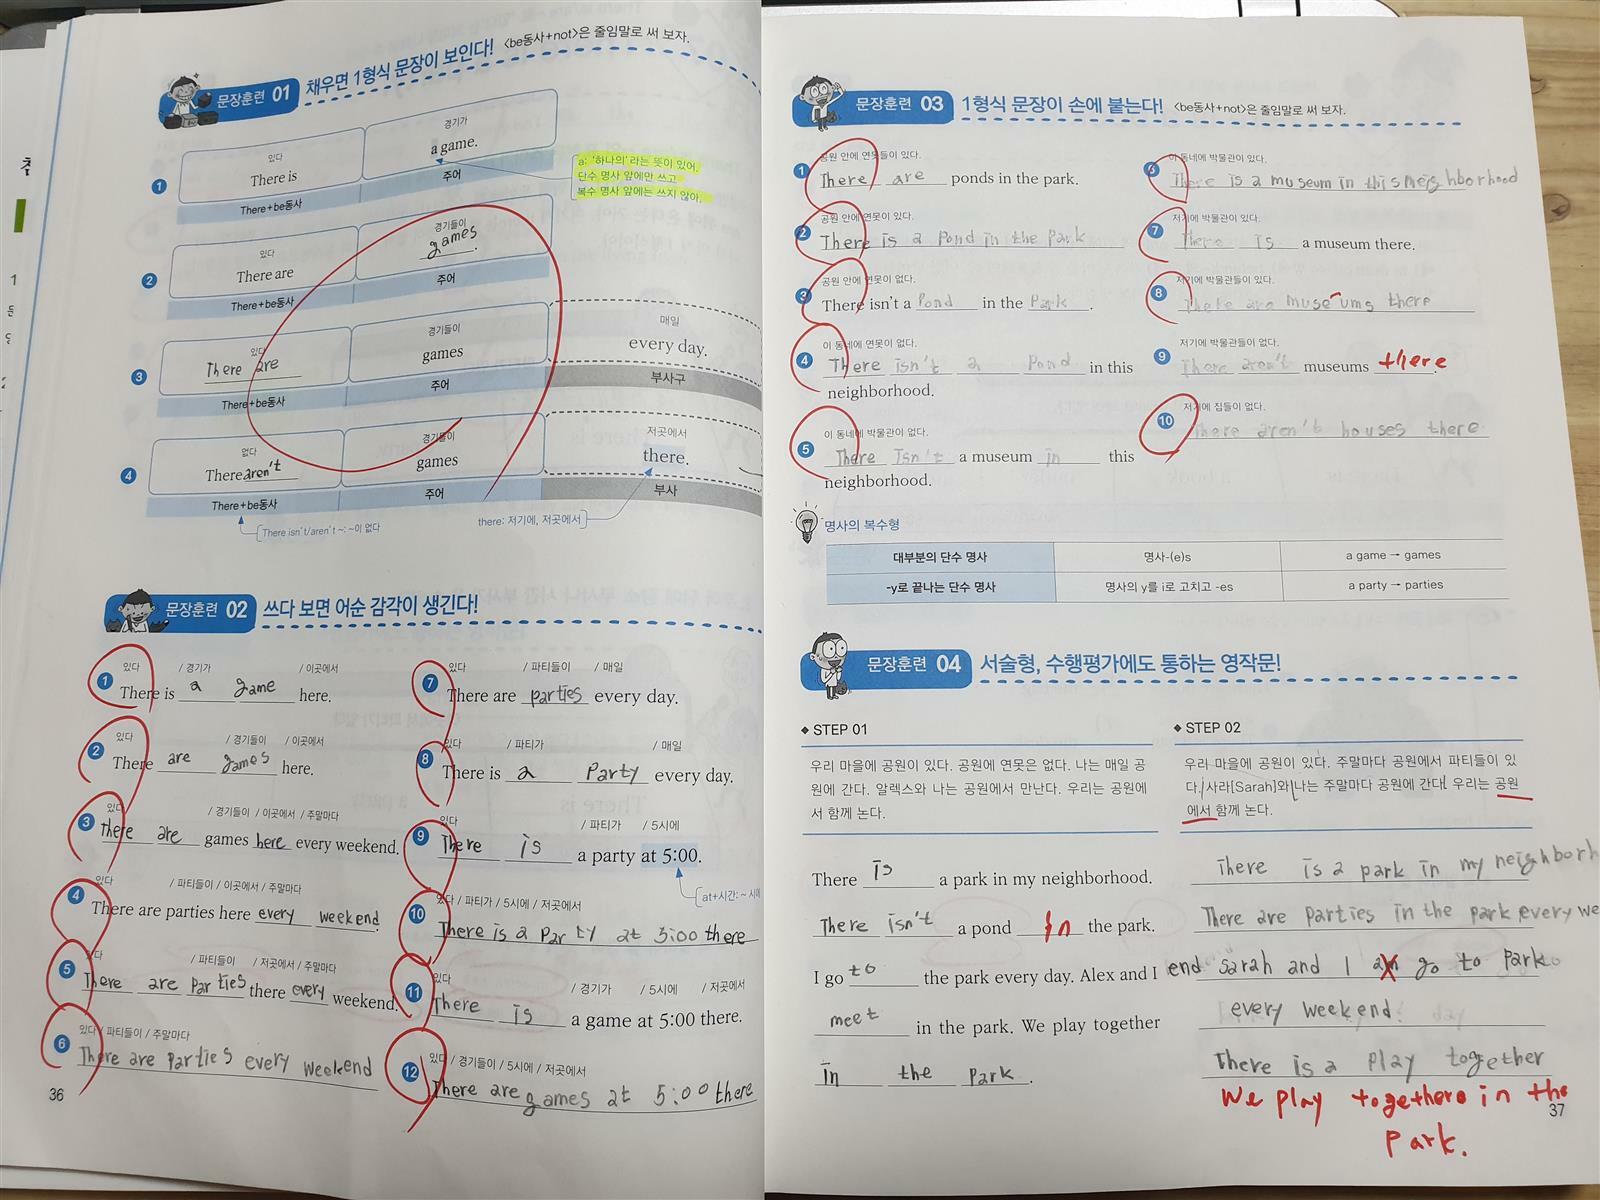 문장훈련 01 채우면 1형식 문장이 보인다! <be동사+not>은 줄임말로 써 보자.
1
있다
경기가
There is
a game.
There+be동사
주어
a: '하나의'라는 뜻이 있어.
단수 명사 앞에만 쓰고
복수 명사 앞에는 쓰지 않아.
2
있다
경기들이
There are
games.
There+be동사
주어
3
있다
경기들이
매일
There are
games
every day.
There+be동사
주어
부사구
4
없다
경기들이
저곳에서
There aren't
games
there.
There+be동사
주어
부사
There isn't/aren't ~: ~이 없다
there: 저기에, 저곳에서
문장훈련 02 쓰다 보면 어순 감각이 생긴다!
1 있다 / 경기가 / 이곳에서
There is a game here.
2 있다 / 경기들이 / 이곳에서
There are games here.
3 있다 / 경기들이 / 이곳에서 / 주말마다
there are games here every weekend.
4 있다 / 파티들이 / 이곳에서 / 주말마다
There are parties here every weekend.
5 있다 / 파티들이 / 저곳에서 / 주말마다
There are parties there every weekend.
6 있다 / 파티들이 / 주말마다
There are parties every weekend
7 있다 / 파티들이 / 매일
There are parties every day.
8 있다 / 파티가 / 매일
There is a party every day.
9 있다 / 파티가 / 5시에
There is a party at 5:00.
at+시간: ~ 시에
10 있다 / 파티가 / 5시에 / 저곳에서
There is a party at 5:00 there
11 있다 / 경기가 / 5시에 / 저곳에서
There is a game at 5:00 there.
12 있다 / 경기들이 / 5시에 / 저곳에서
There are games at 5:00 there
36
문장훈련 03 1형식 문장이 손에 붙는다! <be동사+not>은 줄임말로 써 보자.
1 공원 안에 연못들이 있다.
There are ponds in the park.
2 공원 안에 연못이 있다.
There is a pond in the park
3 공원 안에 연못이 없다.
There isn't a pond in the park.
4 이 동네에 연못이 없다.
There isn't a pond in this
neighborhood.
5 이 동네에 박물관이 없다.
There isn't a museum in this
neighborhood.
6 이 동네에 박물관이 있다.
There is a museum in this neighborhood
7 저기에 박물관이 있다.
There is a museum there.
8 저기에 박물관들이 있다.
There are museums there
9 저기에 박물관들이 없다.
There aren't museums there.
10 저기에 집들이 없다.
There aren't houses there
명사의 복수형
대부분의 단수 명사 명사-(e)s a game → games
-y로 끝나는 단수 명사 명사의 y를 i로 고치고 -es a party → parties
문장훈련 04 서술형, 수행평가에도 통하는 영작문!
STEP 01
우리 마을에 공원이 있다. 공원에 연못은 없다. 나는 매일 공
원에 간다. 알렉스와 나는 공원에서 만난다. 우리는 공원에
서 함께 논다.
There is a park in my neighborhood.
There isn't a pond in the park.
I go to the park every day. Alex and I
meet in the park. We play together
in the park.
STEP 02
우리 마을에 공원이 있다. 주말마다 공원에서 파티들이 있
다. 사라[Sarah]와 나는 주말마다 공원에 간다. 우리는 공원
에서 함께 논다.
There is a park in my neighborh
There are parties in the park every we
end sarah and I am go to park
every weekend.
There is a play together
We play together in the
park.
37